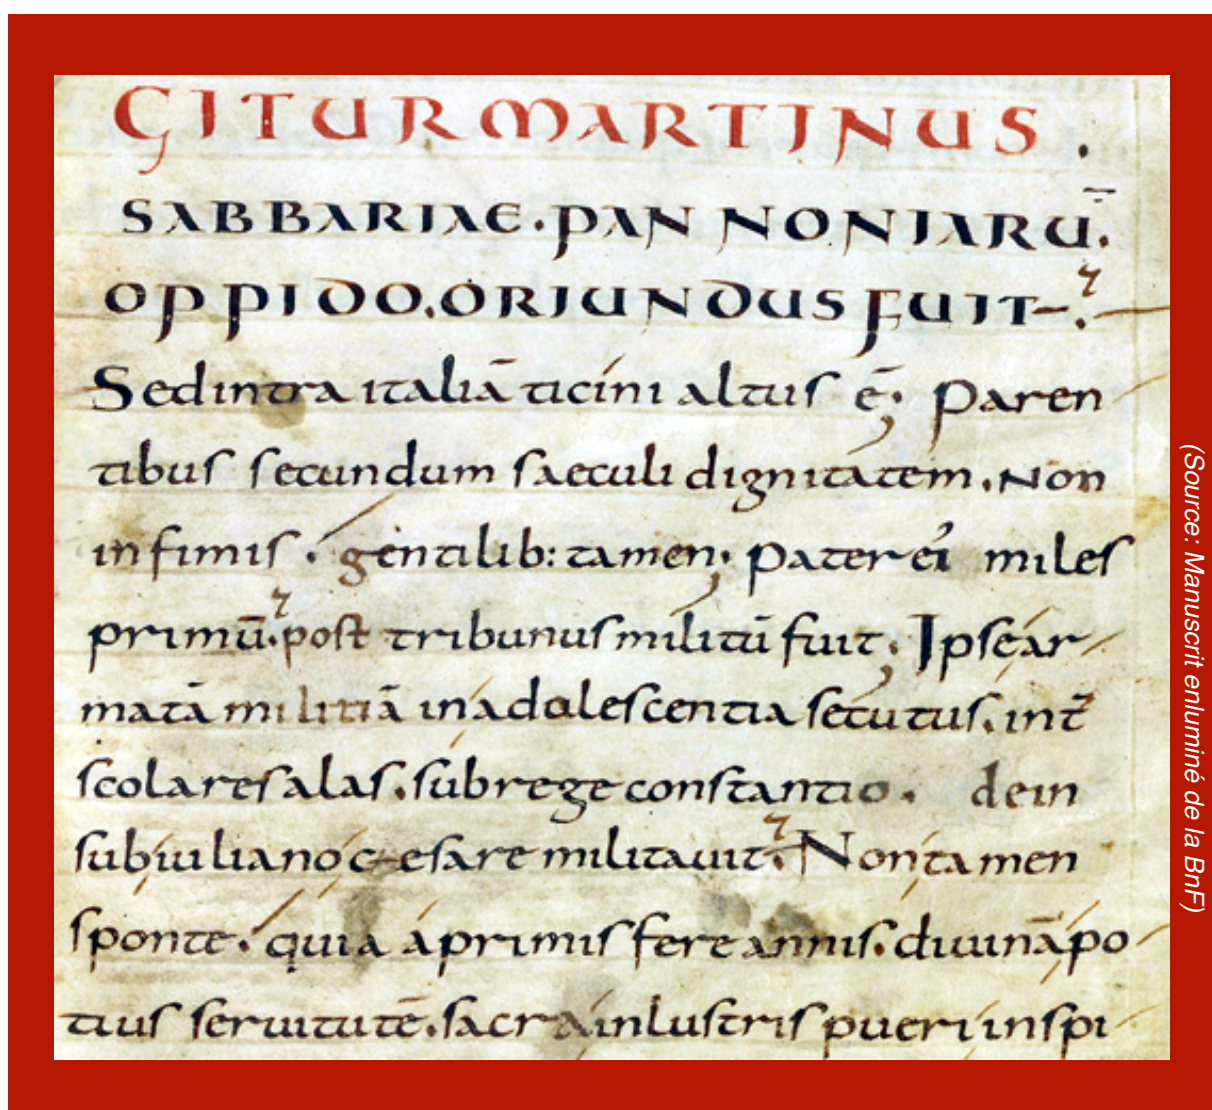 GITUR MARTINUS.
SABBARIAE. PAN NONIARŪ.
OPPIDO. ORIUNDUS FUIT
Sed intra italiā ticini altus ē; Paren
tibus secundum saeculi dignitatem. Non
infimis. gentilib: tamen; Pater ei miles
primū. post tribunus militū fuit; Ipse ar
matā militiā in adolescentia secutus. int̄
scolares alas. sub rege constantio. dein
sub iuliano cesare militauit. Non tamen
sponte. quia a primis fere annis. diuinā po
tius seruitutē. sacra inlustris pueri inspi
(Source: Manuscrit enluminé de la BnF)